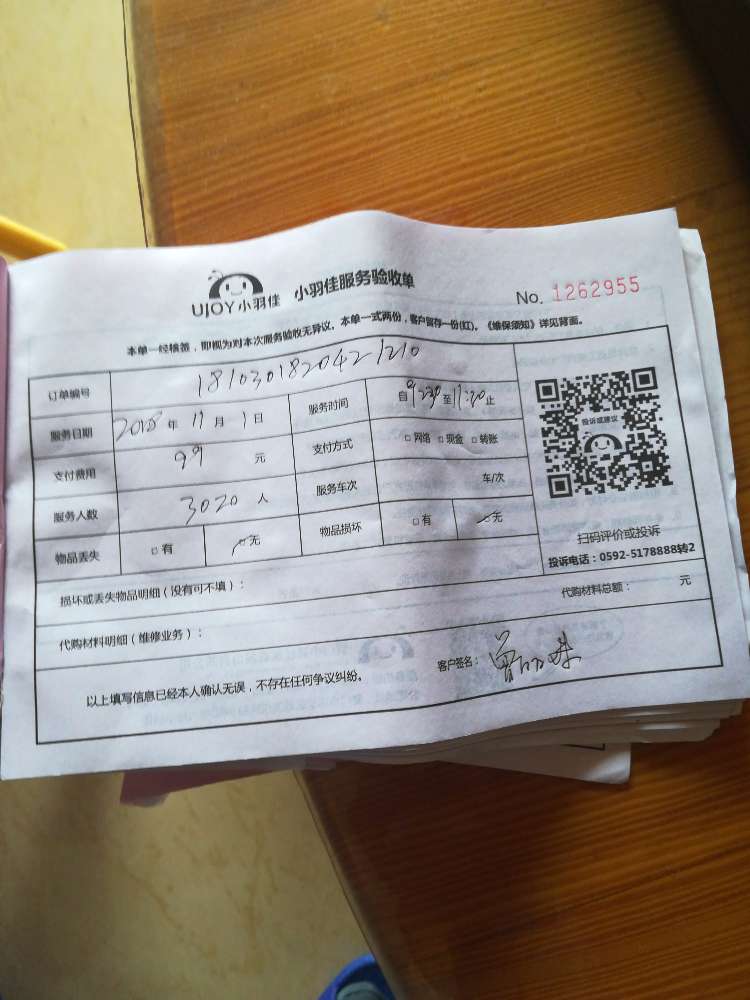 UJOY小羽佳 小羽佳服务验收单 No. 1262955
本单一经核签，即视为对本次服务验收无异议。本单一式两份，客户留存一份(红)。《维保须知》详见背面。
订单编号 1810301820421210
服务日期 2018年11月1日 服务时间 自9:20至11:20止
支付费用 99元 支付方式 □网络 □现金 □转账
服务人数 3020人 服务车次 车/次
物品丢失 □有 □无 物品损坏 □有 □无
投诉或建议
扫码评价或投诉
投诉电话：0592-5178888转2
损坏或丢失物品明细（没有可不填）：
代购材料明细（维修业务）： 代购材料总额： 元
以上填写信息已经本人确认无误，不存在任何争议纠纷。 客户签名：